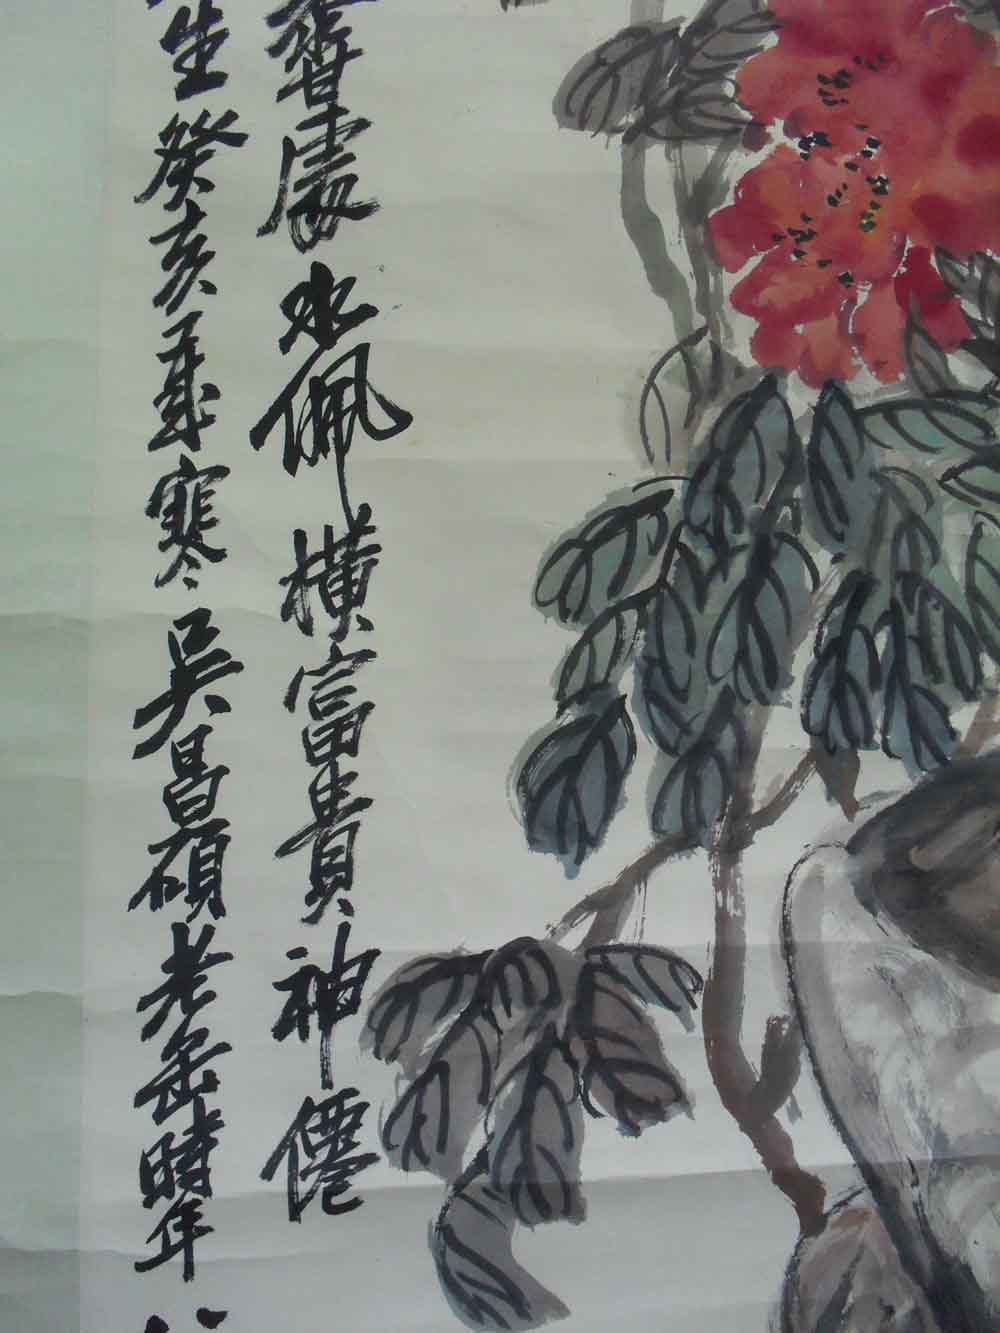 處水佩橫富貴神僊
生癸亥歲寒吳昌碩老缶時年八